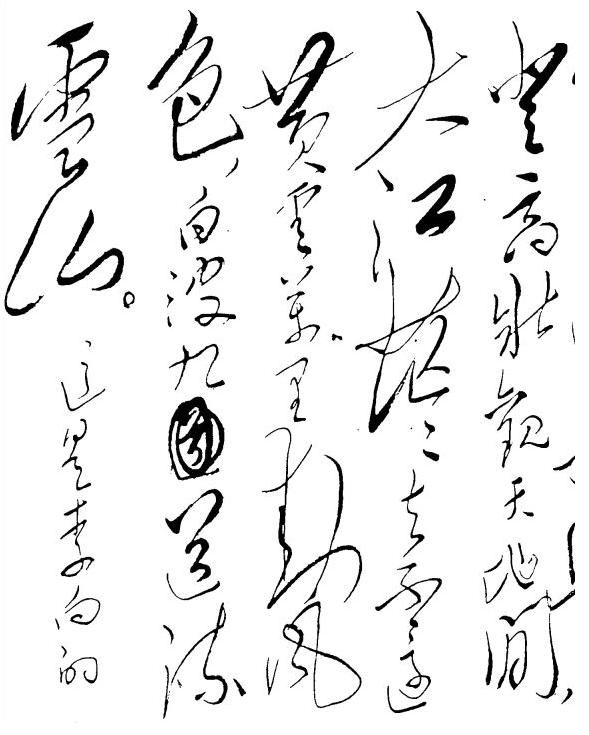 登高壯觀天地間，
大江茫〻去不還
黃雲萬里動風
色，白波九道流
雲山。
這是李白的